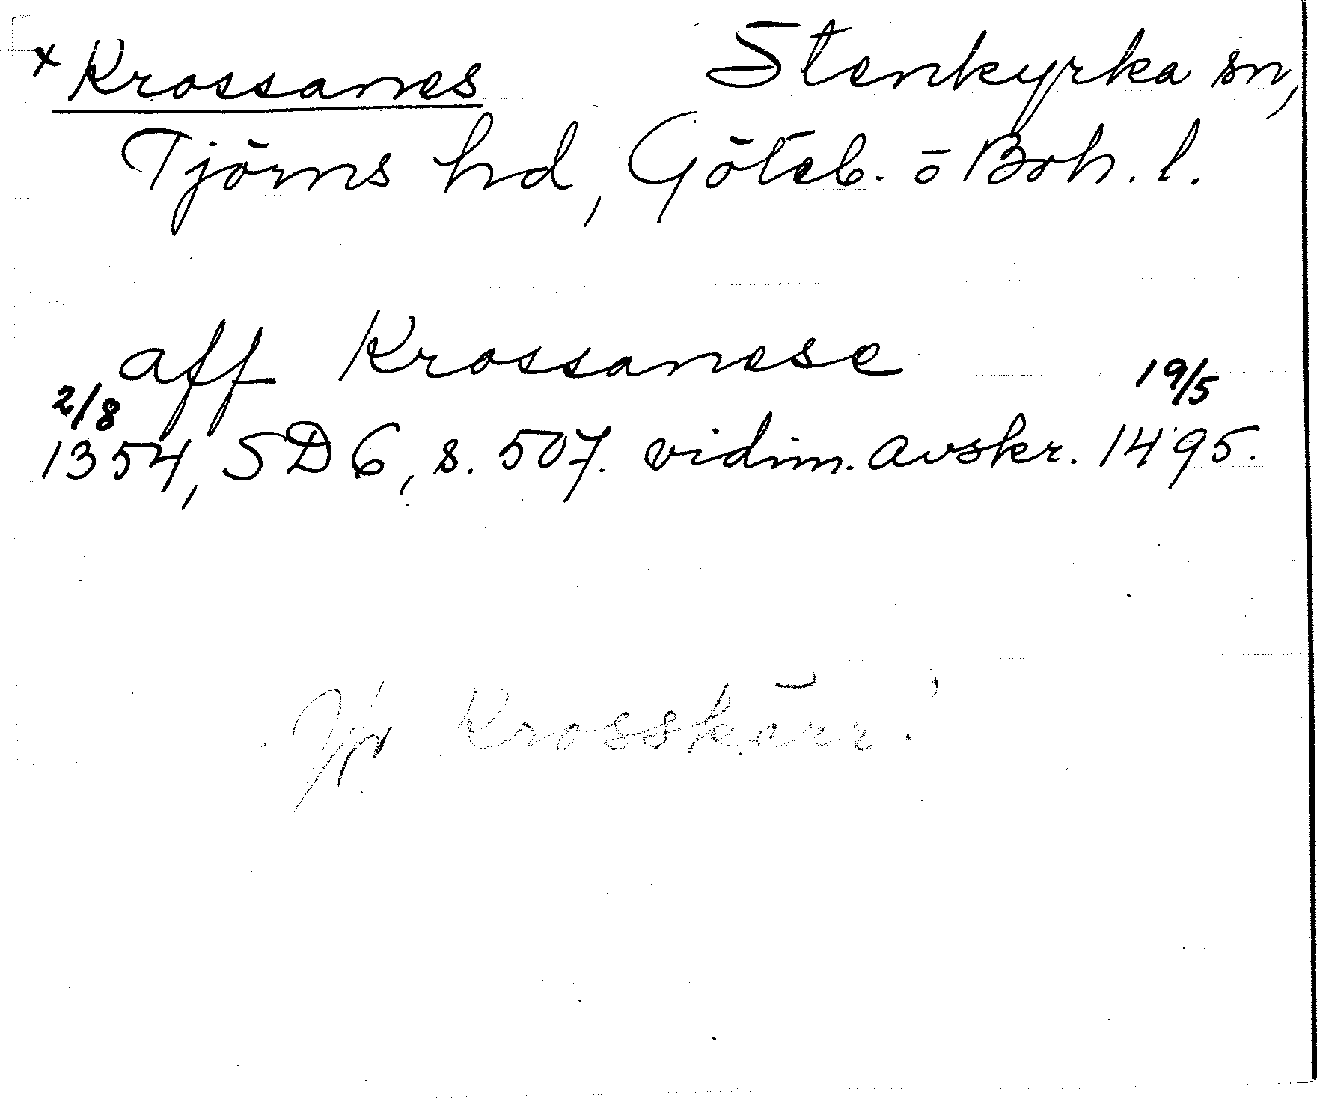 x Krossanes Stenkyrka sn,
Tjörns hd, Göteb. o Boh. l.
aff Krossanese
2/8 19/5
1354, SD 6, s. 507. vidim. avskr. 1495.
Jfr Krosskärr!